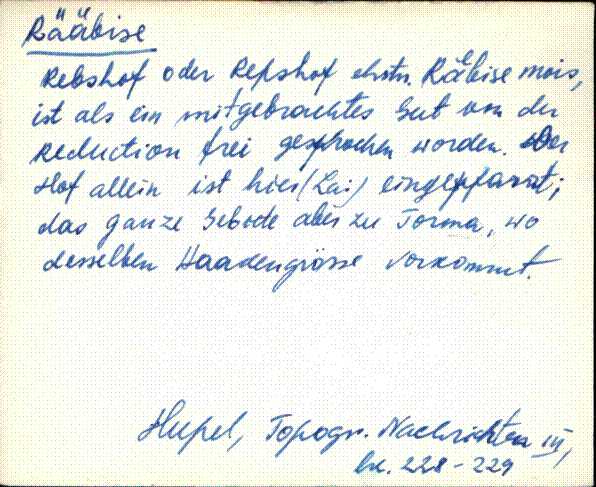 Rääbise
Rebshof oder Repshof ehstn. Räbise mois,
ist als ein mitgebrachtes Gut von der
Reduction frei gesprochen worden. Der
Hof allein ist hier (Lai) eingepfarrt;
das ganze Gebiete aber zu Torma, wo
desselben Haadengrösse vorkommt.
Hupel, Topogr. Nachrichten III,
lk. 228-229